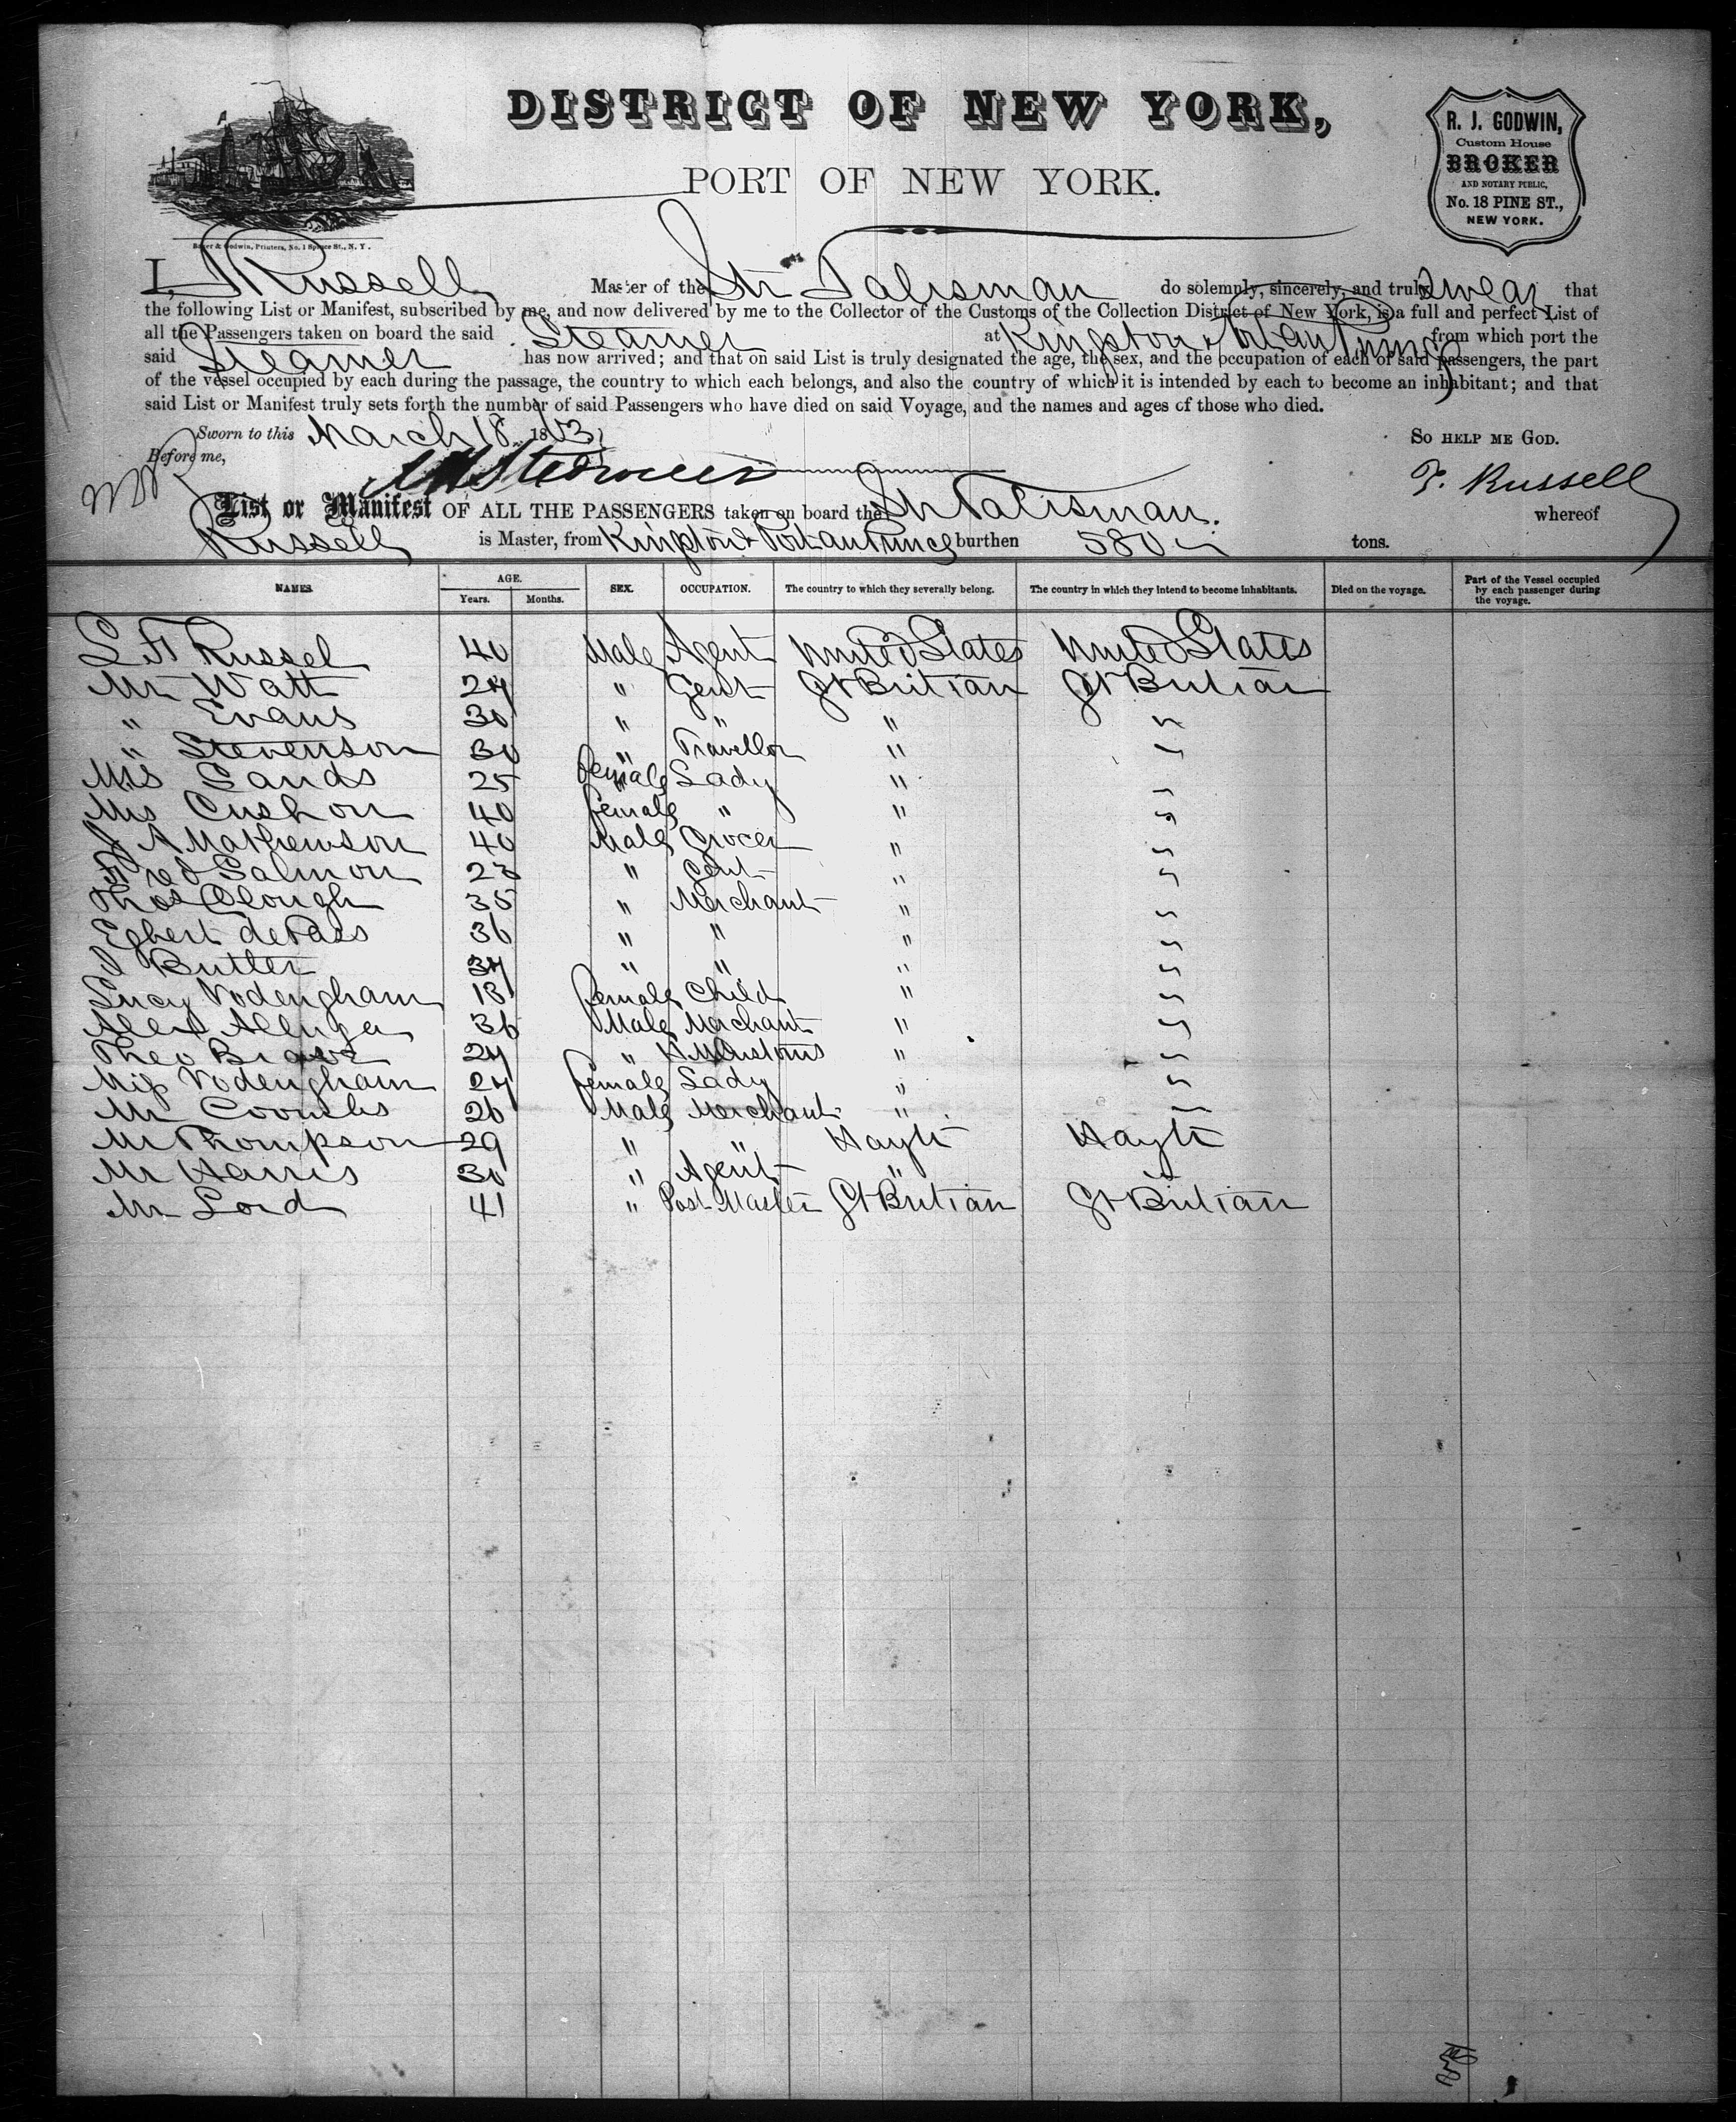 DISTRICT OF NEW YORK,
PORT OF NEW YORK.
R. J. GODWIN,
Custom House
BROKER
AND NOTARY PUBLIC,
No. 18 PINE ST.,
NEW YORK.
Baker & Godwin, Printers, No. 1 Spruce St., N. Y.
I, Russell Master of the Str Talisman do solemnly, sincerely, and truly swear that
the following List or Manifest, subscribed by me, and now delivered by me to the Collector of the Customs of the Collection District of New York, is a full and perfect List of
all the Passengers taken on board the said Steamer at Kingston & Port au Prince from which port the
said Steamer has now arrived; and that on said List is truly designated the age, the sex, and the occupation of each of said passengers, the part
of the vessel occupied by each during the passage, the country to which each belongs, and also the country of which it is intended by each to become an inhabitant; and that
said List or Manifest truly sets forth the number of said Passengers who have died on said Voyage, and the names and ages of those who died.
Sworn to this March 18 1863 So HELP ME GOD.
Before me,
F. Russell
List or Manifest OF ALL THE PASSENGERS taken on board the Str Talisman. whereof
Russell is Master, from Kingston & Port au Prince burthen 580 tons.
NAMES. AGE. Years. Months. SEX. OCCUPATION. The country to which they severally belong. The country in which they intend to become inhabitants. Died on the voyage. Part of the Vessel occupied by each passenger during the voyage.
Russel 40 Male Agent United States United States
Mr Watt 24 " Gent Gt Britian Gt Britian
" Evans 30 " " " "
" Stevenson 30 " Travellor " "
Mrs Sands 25 female Lady " "
Mrs Cushon 40 female " " "
J A Mathewson 40 Male Grocer " "
Fred Salmon 23 " Gent " "
Thos Clough 35 " Merchant " "
Egbert dePass 36 " " " "
Butler 34 " " " "
Lucy Vodengham 13 female Child " "
Alex 36 Male Merchant " "
Theo 24 " " "
Miss Vodengham 24 female Lady " "
Mr Coombs 26 Male Merchant " "
Mr Thompson 29 " " Hayti Hayti
Mr Harris 30 " Agent " "
Mr Lord 41 " Post Master Gt Britian Gt Britian